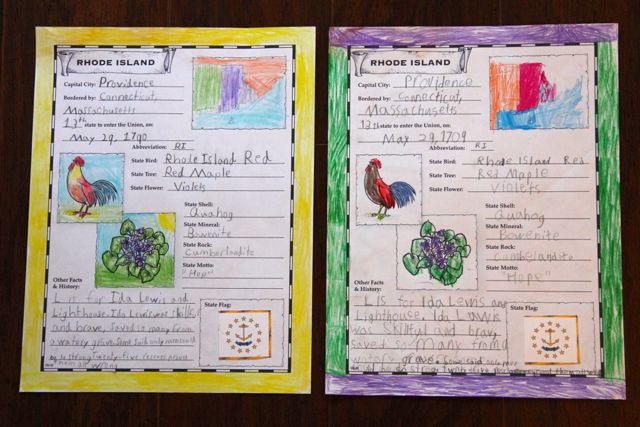 RHODE ISLAND
Capital City: Providence
Bordered by: Connecticut,
Massachusetts
13th state to enter the Union, on:
May 29, 1790
Abbreviation: RI
State Bird: Rhode Island Red
State Tree: Red Maple
State Flower: Violets
State Shell:
Quahog
State Mineral:
Bowenite
State Rock:
Cumberlandite
State Motto:
"Hope"
Other Facts
& History:
L is for Ida Lewis and
Lighthouse. Ida Lewis was skillful
and brave, saved so many from
a watery grave. Some said only men could
be so strong twenty-five rescues proved
them all wrong
State Flag:
HOPE
RHODE ISLAND
Capital City: Providence
Bordered by: Connecticut,
Massachusetts
13th state to enter the Union, on:
May 29, 1709
Abbreviation: RI
State Bird: Rhode Island Red
State Tree: Red Maple
State Flower: Violets
State Shell:
Quahog
State Mineral:
Bowenite
State Rock:
Cumbelandite
State Motto:
"Hope"
Other Facts
& History:
L is for Ida Lewis and
Lighthouse. Ida Lewis
was skillful and brav
saved so many from a
watory grave. Some said only men
could be so strong twenty-five
State Flag:
HOPE